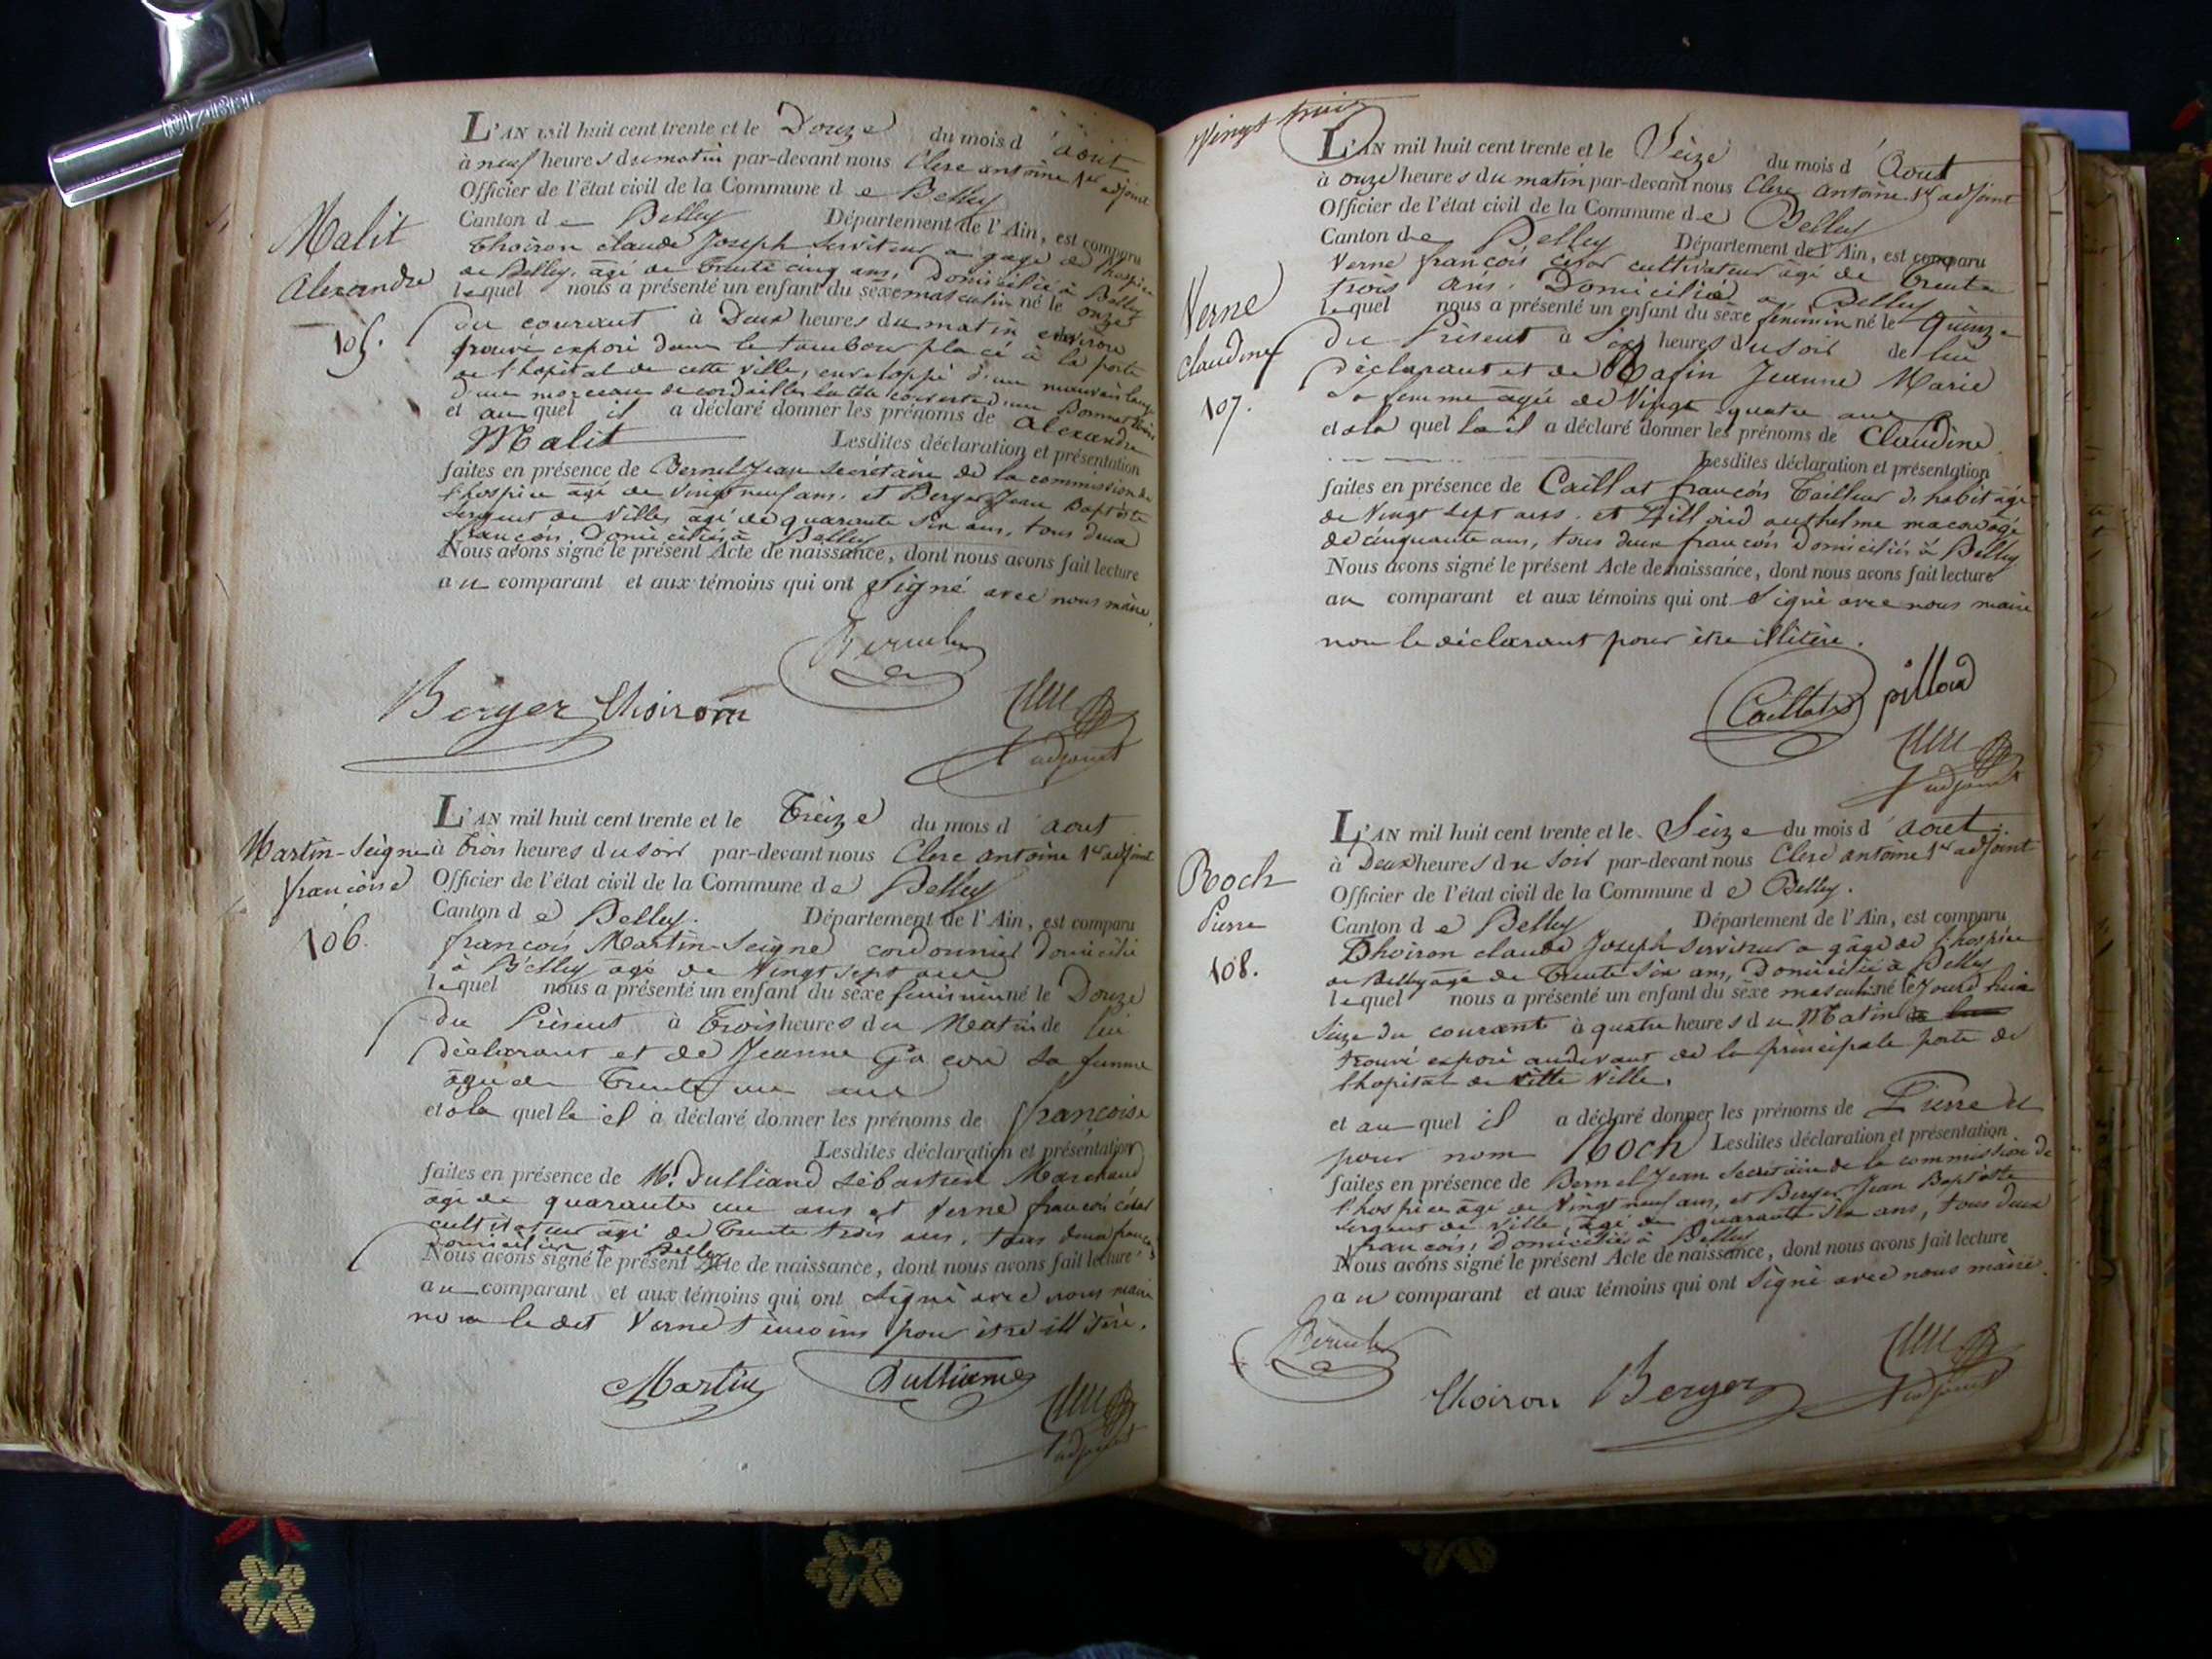 Malit
Alexandre
105.
L'AN mil huit cent trente et le Douze du mois d'aout
à neuf heures du matin par-devant nous Clerc antoine 1er adjoint
Officier de l'état civil de la Commune de Belley
Canton de Belley Département de l'Ain, est comparu
Thoiron claude Joseph serviteur a gage de l'hospice
de Belley, âgé de Trente cinq ans, Domicilié à Belley
lequel nous a présenté un enfant du sèxe masculin né le onze
du courant à Deux heures du matin environ
trouvé exposé dans le tambour placé à la porte
de l'hopital de cette ville, enveloppé d'un mauvais lange
d'un morceau de cordaillé la tête couverte d'un Bonnet
et au quel il a déclaré donner les prénoms de alexandre
Malit Lesdites déclaration et présentation
faites en présence de Bernel Jean secrétaire de la commission de
l'hospice âgé de vingt neuf ans, et Berger Jean Baptiste
sergent de Ville, âgé de quarante six ans, tous deux
françois, Domiciliés à Belley
Nous avons signé le présent Acte de naissance, dont nous avons fait lecture
au comparant et aux témoins qui ont signé avec nous maire.
Berger Thoiron
Clerc
adjoint
Martin-Seigne
françoise
106.
L'AN mil huit cent trente et le Treize du mois d'aout
à Trois heures du soir par-devant nous Clerc antoine 1er adjoint
Officier de l'état civil de la Commune de Belley
Canton de Belley. Département de l'Ain, est comparu
françois Martin-Seigne cordonnier Domicilié
à Belley âgé de Vingt sept ans
lequel nous a présenté un enfant du sèxe feminin né le Douze
du Présent à Trois heures du Matin de lui
Déclarant et de Jeanne sa femme
âgée de Trente un ans
et a la quelle il a déclaré donner les prénoms de françoise
Lesdites déclaration et présentation
faites en présence de Mr. Dulliand sébastien Marchand
âgé de quarante un ans et Verne françois césar
cultivateur âgé de Trente trois ans, tous deux françois
domiciliés à Belley
Nous avons signé le présent Acte de naissance, dont nous avons fait lecture
au comparant et aux témoins qui ont signé avec nous maire
non le dit Verne témoins pour être illitéré.
Martin Dulliand
Clerc
adjoint
Vingt trois
Verne
Claudine
107.
L'AN mil huit cent trente et le Seize du mois d'Aout
à onze heures du matin par-devant nous Clerc Antoine 1er adjoint
Officier de l'état civil de la Commune de Belley
Canton de Belley Département de l'Ain, est comparu
Verne françois césar cultivateur âgé de Trente
trois ans, Domicilié a Belley
lequel nous a présenté un enfant du sèxe féminin né le Quinze
du Présent à Six heures du soir de lui
Déclarant et de Jeanne Marie
sa femme âgée de Vingt quatre ans
et a la quelle il a déclaré donner les prénoms de Claudine
Lesdites déclaration et présentation
faites en présence de Caillat françois Tailleur d'habit âgé
de Vingt sept ans, et Pilloud anthelme maçon âgé
de cinquante ans, tous deux françois Domiciliés à Belley
Nous avons signé le présent Acte de naissance, dont nous avons fait lecture
au comparant et aux témoins qui ont signé avec nous maire
non le déclarant pour être illitéré.
Caillat pilloud
Clerc
adjoint
Roch
Pierre
108.
L'AN mil huit cent trente et le Seize du mois d'aout
à Deux heures du soir par-devant nous Clerc antoine 1er adjoint
Officier de l'état civil de la Commune de Belley.
Canton de Belley Département de l'Ain, est comparu
Thoiron claude Joseph serviteur a gage de l'hospice
de Belley âgé de Trente six ans, Domicilié à Belley
lequel nous a présenté un enfant du sèxe masculin né le Jourd'huit
seize du courant à quatre heures du Matin de lui
trouvé exposé audevant de la principale porte de
l'hopital de cette Ville.
et au quel il a déclaré donner les prénoms de Pierre et
pour nom Roch Lesdites déclaration et présentation
faites en présence de Bernel Jean secretaire de la commission de
l'hospice âgé de Vingt neuf ans, et Berger Jean Baptiste
sergent de Ville, âgé de quarante six ans, tous deux
françois, Domiciliés à Belley
Nous avons signé le présent Acte de naissance, dont nous avons fait lecture
au comparant et aux témoins qui ont signé avec nous maire.
Thoiron Berger
Clerc
adjoint